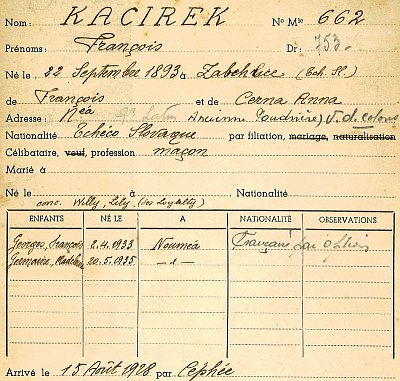 Nom: KACIREK No Mle 662
Prénoms: François Dr: 753-
Né le 22 Septembre 1893 à Zabehlice (Tch. Sl.)
de François et de Cerna Anna
Adresse: Néa Ancienne Poudrière) V. d. Colons
Nationalité Tchéco Slovaque par filiation, mariage, naturalisation
Célibataire, veuf, profession maçon
Marié à
Né le à Nationalité
conc. Willy, Lily, (des Loyalty)
ENFANTS NÉ LE A NATIONALITÉ OBSERVATIONS
Georges, François 2.4.1933 Nouméa Française par option
Germaine, Madeleine 20.5.1935 -"-
Arrivé le 15 Août 1928 par Céphée